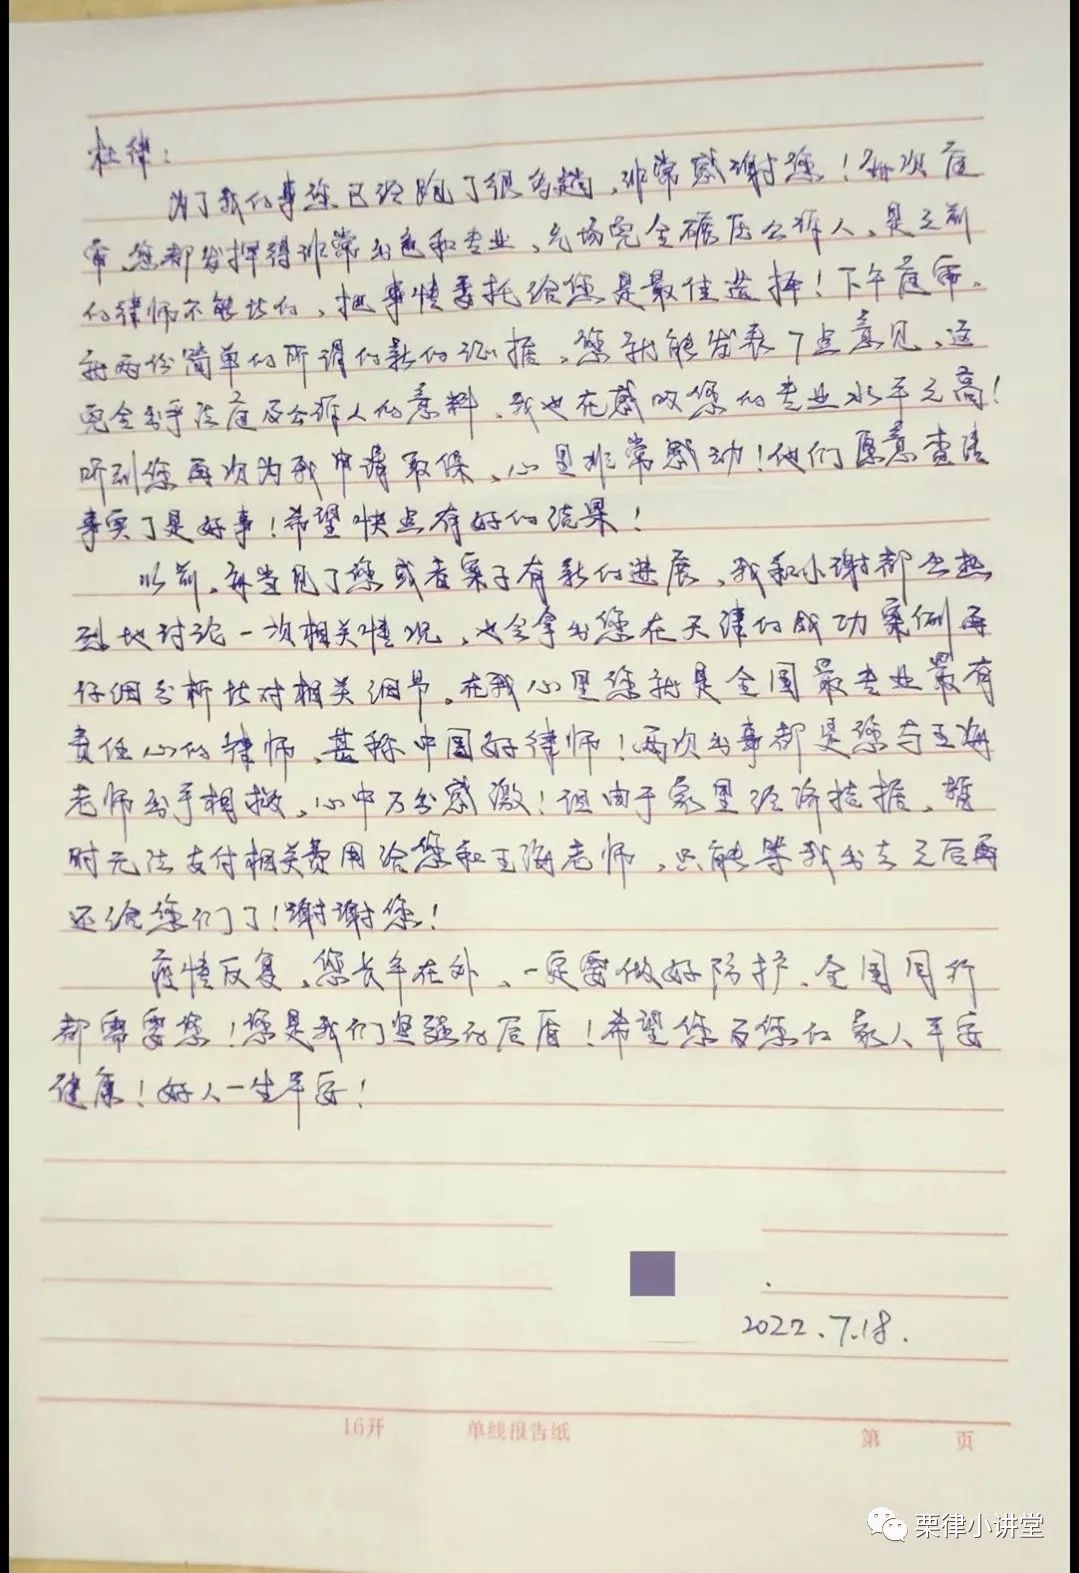 杜律：
为了我的事您已经跑了很多趟，非常感谢您！每次庭
审，您都发挥得非常出色和专业，气场完全碾压公诉人，是之前
的律师不能比的，把事情委托给您是最佳选择！下午庭审，
就两份简单的所谓的新的证据，您就能发表7点意见，这
完全出乎法庭及公诉人的意料，我也在感叹您的专业水平之高！
听到您再次为我申请取保，心里非常感动！他们愿意查清
事实了是好事！希望快点有好的结果！
以前，每当见了您或者案子有新的进展，我和小谢都会热
烈地讨论一次相关情况，也会拿出您在天津的成功案例再
仔细分析比对相关细节。在我心里您就是全国最专业最有
责任心的律师，甚称中国好律师！两次出事都是您与王海
老师出手相救，心中万分感激！但由于家里经济拮据，暂
时无法支付相关费用给您和王海老师，只能等我出去之后再
还给您们了！谢谢您！
疫情反复，您长年在外，一定要做好防护，全国同行
都需要您！您是我们坚强的后盾！希望您及您的家人平安
健康！好人一生平安！
2022.7.18.
16开 单线报告纸 第 页
栗律小讲堂